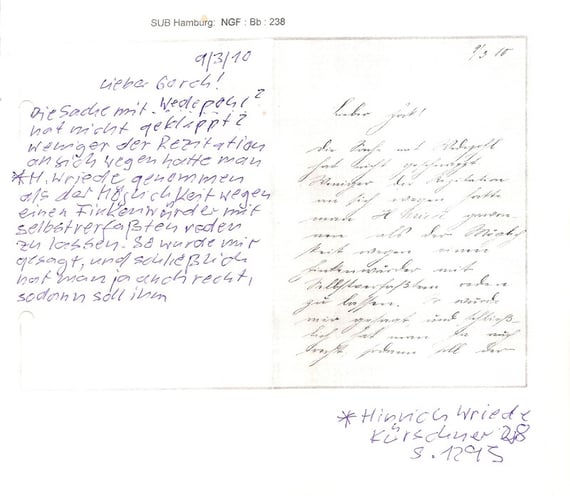 SUB Hamburg: NGF : Bb : 238
9/3/10
Lieber Gorch!
Die Sache mit Wedepohl?
hat nicht geklappt?
weniger der Rezitation
an sich wegen hatte man
* H. Wriede genommen
als der Möglichkeit wegen
einen Finkenwärder mit
selbstverfaßten reden
zu lassen. So wurde mir
gesagt, und schließlich
hat man ja auch recht,
sodann soll ihm
9/3 10
Lieber
Die Sache mit Wedepohl
hat nicht
Weniger der Rezitation
an sich wegen hatte
man H Wriede genom-
men als der Möglich
keit wegen einen
Finkenwärder mit
Selbstverfaßten reden
zu lassen. So wurde
mir gesagt und schließ-
lich hat man ja auch
recht sodann soll
* Hinrich Wriede
Kürschner 28
S. 1295